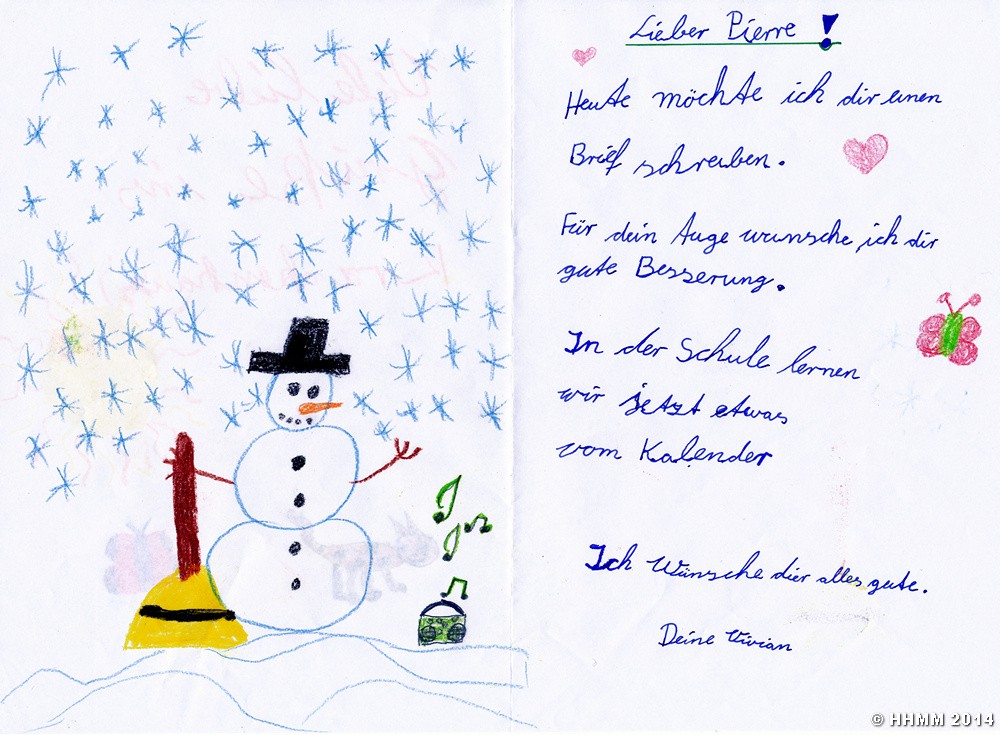 Lieber Pierre!
Heute möchte ich dir einen
Brief schreiben.
Für dein Auge wünsche ich dir
gute Besserung.
In der Schule lernen
wir jetzt etwas
vom Kalender
Ich Wünsche dier alles gute.
Deine Vivian
© HHMM 2014